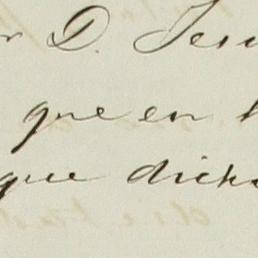 D. Jesu
que en
que dicho